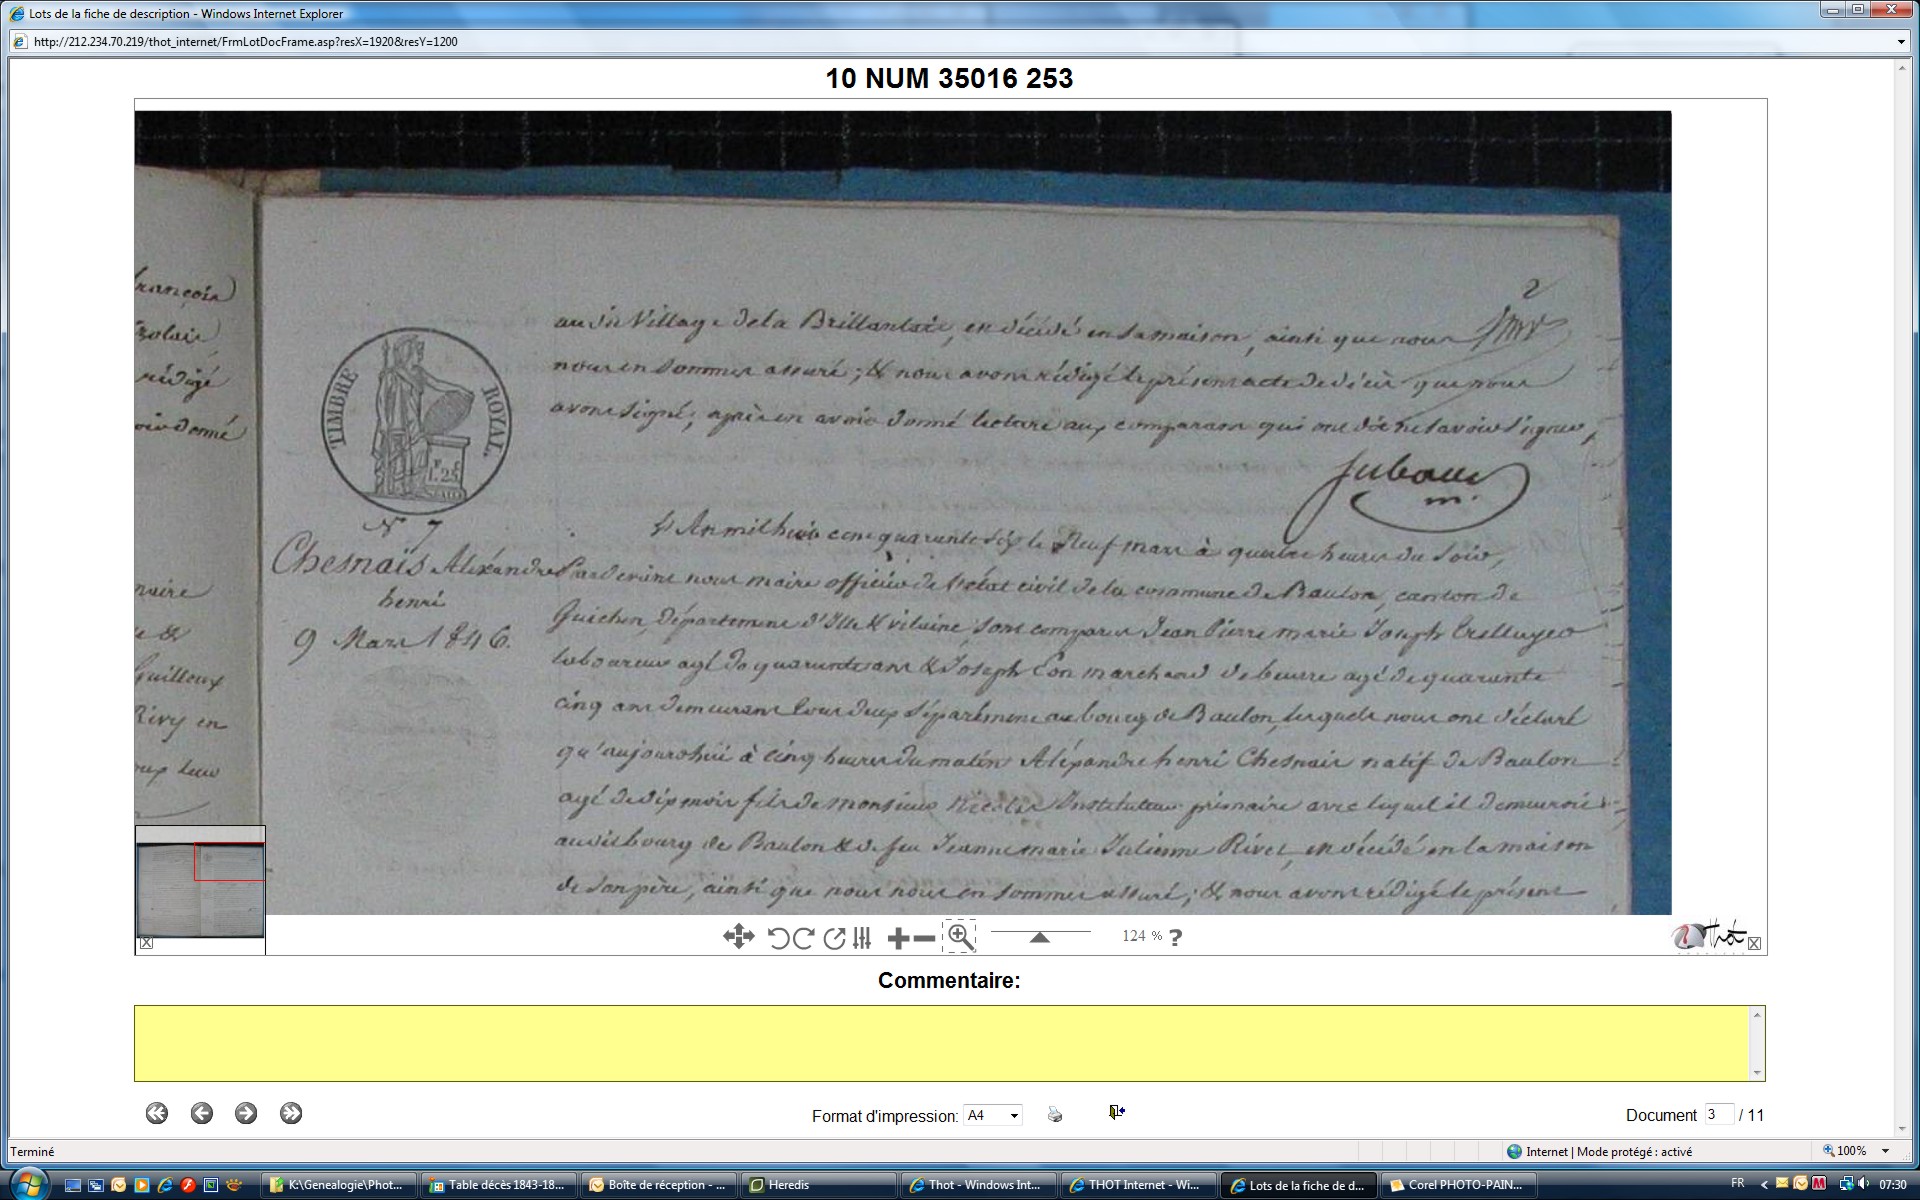 Lots de la fiche de description - Windows Internet Explorer
http://212.234.70.219/thot_internet/FrmLotDocFrame.asp?resX=1920&resY=1200
10 NUM 35016 253
françois
rédigé
donné
naire
Guilleux
Rivy en
2
au dit Village de la Brillantais, est décédé en sa maison, ainsi que nous
nous en sommes assuré; & nous avons rédigé le présent acte de décès que nous
avons signé, après en avoir donné lecture aux comparans qui ont dit ne savoir signer,
TIMBRE ROYAL.
1.25
Jubault
m.
N° 7
Chesnais Aléxandre
henri
9 Mars 1846.
L'An mil huit cent quarante Six le Neuf mars à quatre heures du Soir,
Pardevant nous maire officier de l'état civil de la commune de Baulon, canton de
Guichen, département d'Ille & vilaine, sont comparus Jean Pierre marie Joseph
laboureur agé de quarante ans & Joseph Eon marchand de beurre agé de quarante
cinq ans demeurant tous deux séparément au bourg de Baulon, lesquels nous ont déclaré
qu'aujourd'hui à cinq heures du matin Aléxandre henri Chesnais natif de Baulon
agé de dix mois fils de monsieur Nicolas Instituteur primaire avec lequel il demeuroit
au dit bourg de Baulon & de feu Jeanne marie Julienne Rivet, est décédé en la maison
de son père, ainsi que nous nous en sommes assuré; & nous avons rédigé le présent
124 %
?
Thot
Commentaire:
Format d'impression: A4
Document 3 / 11
Terminé
Internet | Mode protégé : activé
100%
K:\Genealogie\Phot...
Table décès 1843-18...
Boîte de réception - ...
Heredis
Thot - Windows Int...
THOT Internet - Wi...
Lots de la fiche de d...
Corel PHOTO-PAIN...
FR
07:30